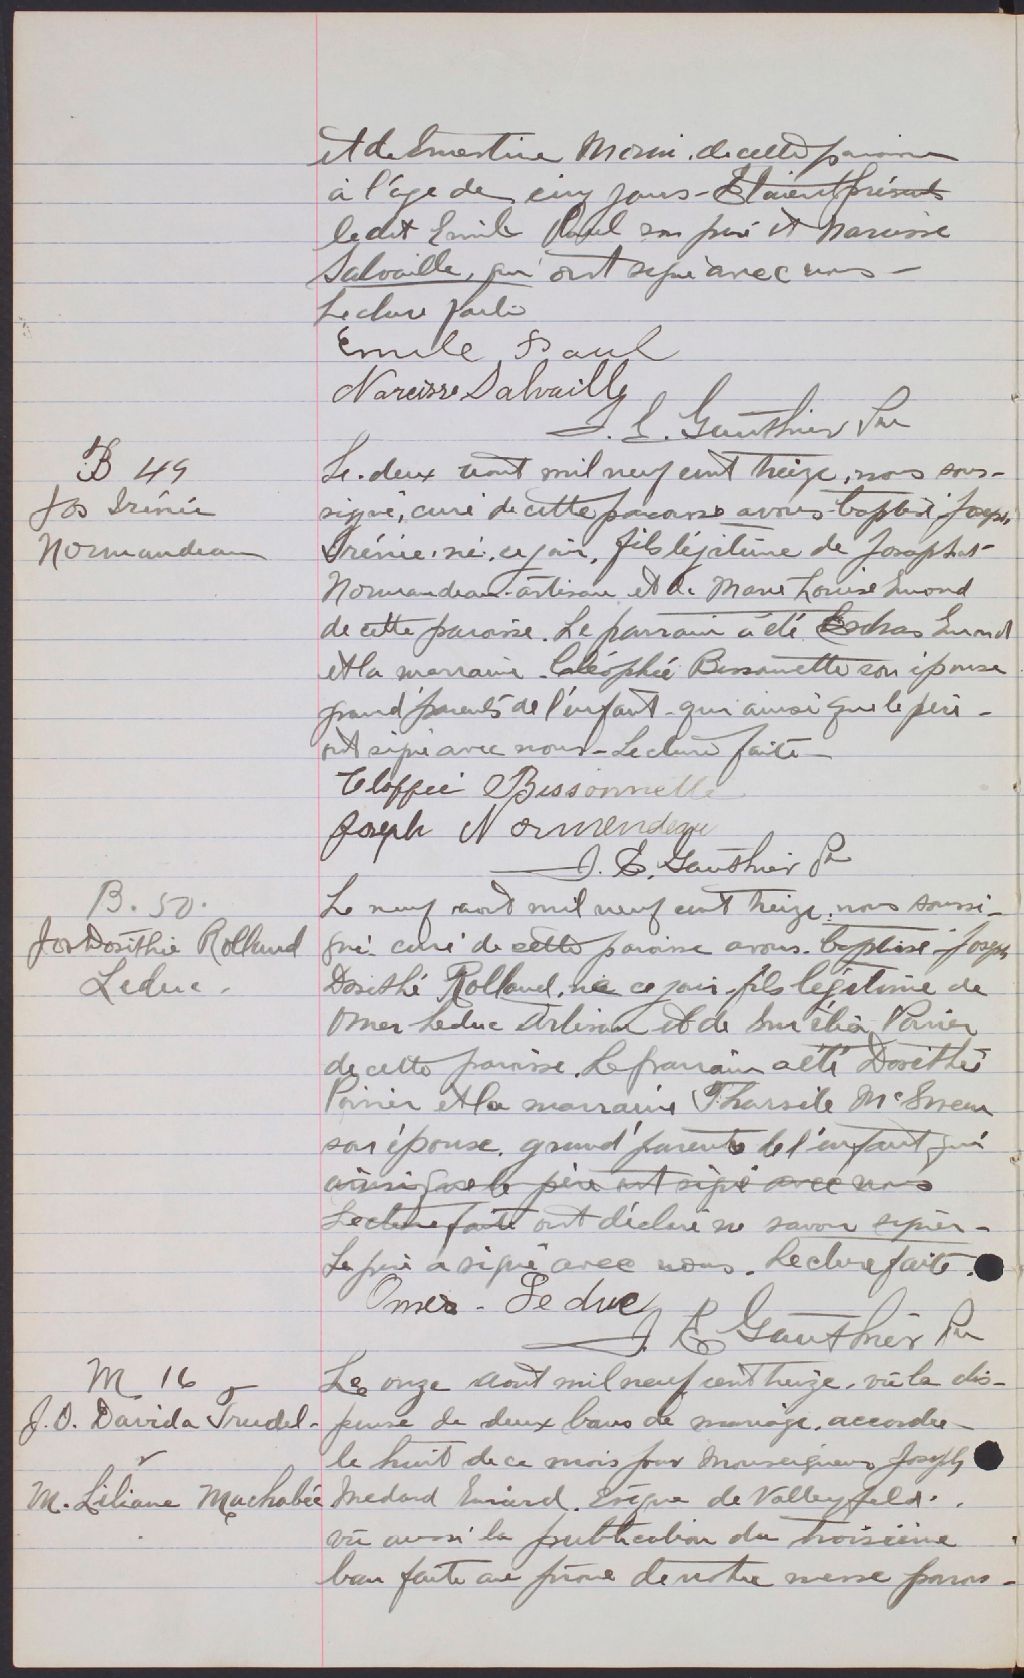 et de Ernestine Morin. de cette paroisse
à l'âge de cinq jours - Etaient présents
ledit Emile Paul son père et Narcisse
Salvaille, qui ont signé avec nous -
Lecture faite
Emile Paul
Narcisse Salvaille
J. E. Gauthier Ptr
B 49
Jos Irénée
Normandeau
Le deux aout mil neuf cent treize, nous sous-
signé, curé de cette paroisse avons baptisé Joseph
Irénée, né ce jour, fils légitime de Josaphat
Normandeau artisan et de Marie Louise Emond
de cette paroisse. Le parrain a été Emond
et la marraine Cléophée Bissonnette son épouse
grand'parents de l'enfant - qui ainsi que le père -
ont signé avec nous - Lecture faite -
Cloffée Bissonnette
Joseph Normendeau
J. E. Gauthier Ptr
B. 50.
Jos Dosithée Rolland
Leduc.
Le neuf aout mil neuf cent treize, nous soussi-
gné curé de cette paroisse avons baptisé Joseph
Dosithé Rolland, né ce jour fils légitime de
Omer Leduc Artisan et de Poirier
de cette paroisse. Le parrain a été Dosithée
Poirier et la marraine Tharsile
son épouse, grand'parents de l'enfant qui
ainsi que le père ont signé avec nous
Lecture faite ont déclaré ne savoir signer -
Le père a signé avec nous. Lecture faite.
Omer - Leduc
J. E. Gauthier Ptr
M 16
J. O. Davida Trudel -
M. Liliane Machabée
Le onze aout mil neuf cent treize, vu la dis-
pense de deux bans de mariage, accordée
le huit de ce mois par Monseigneur Joseph
Medard Emard. Evêque de Valleyfield.
vu aussi la publication du troisième
ban faite au prône de notre messe parois-